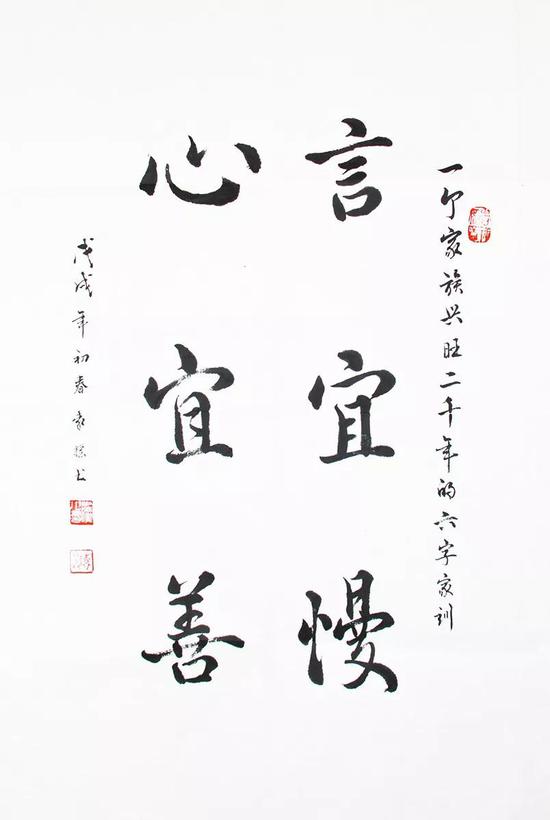 一个家族兴旺二千年的六字家训
言宜慢
心宜善
戊戌年初春